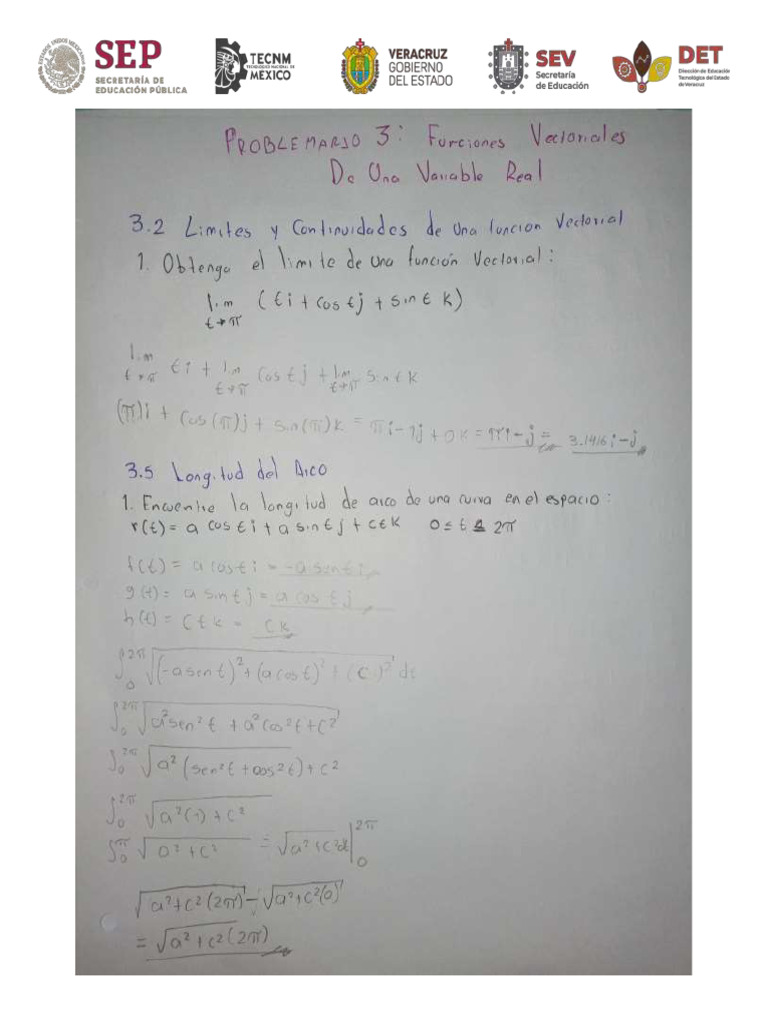 SEP
SECRETARÍA DE
EDUCACIÓN PÚBLICA
TECNM
TECNOLÓGICO NACIONAL DE
MÉXICO
VERACRUZ
GOBIERNO
DEL ESTADO
SEV
Secretaría
de Educación
DET
Dirección de Educación
Tecnológica del Estado
de Veracruz
PROBLEMARIO 3: Funciones Vectoriales
De Una Variable Real
3.2 Limites y Continuidades de una funcion Vectorial
1. Obtenga el limite de una función Vectorial:
lim (ti + cos tj + sin t k)
t→π
lim ti + lim cos tj + lim sin t k
t→π t→π t→π
(π)i + cos(π)j + sin(π)k = πi - 1j + 0k = πi - j = 3.1416i - j
3.5 Longitud del Arco
1. Encuentre la longitud de arco de una curva en el espacio:
r(t) = a cos ti + a sin tj + ctk 0 ≤ t ≤ 2π
f(t) = a cos ti = -a sen ti
g(t) = a sin tj = a cos tj
h(t) = ctk = ck
∫₀^2π √(-a sen t)² + (a cos t)² + (c)² dt
∫₀^2π √a² sen² t + a² cos² t + c²
∫₀^2π √a² (sen² t + cos² t) + c²
∫₀^2π √a² (1) + c²
∫₀^π √a² + c² = √a² + c² dt |₀^2π
√a² + c² (2π) - √a² + c² (0)
= √a² + c² (2π)